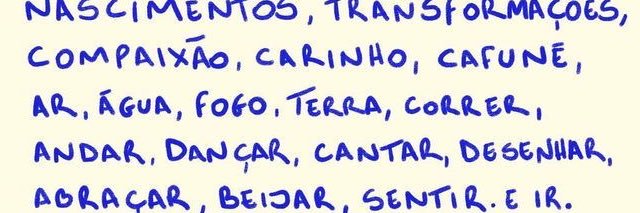 NASCIMENTOS, TRANSFORMAÇÕES,
COMPAIXÃO, CARINHO, CAFUNÉ,
AR, ÁGUA, FOGO, TERRA, CORRER,
ANDAR, DANÇAR, CANTAR, DESENHAR,
ABRAÇAR, BEIJAR, SENTIR. E IR.